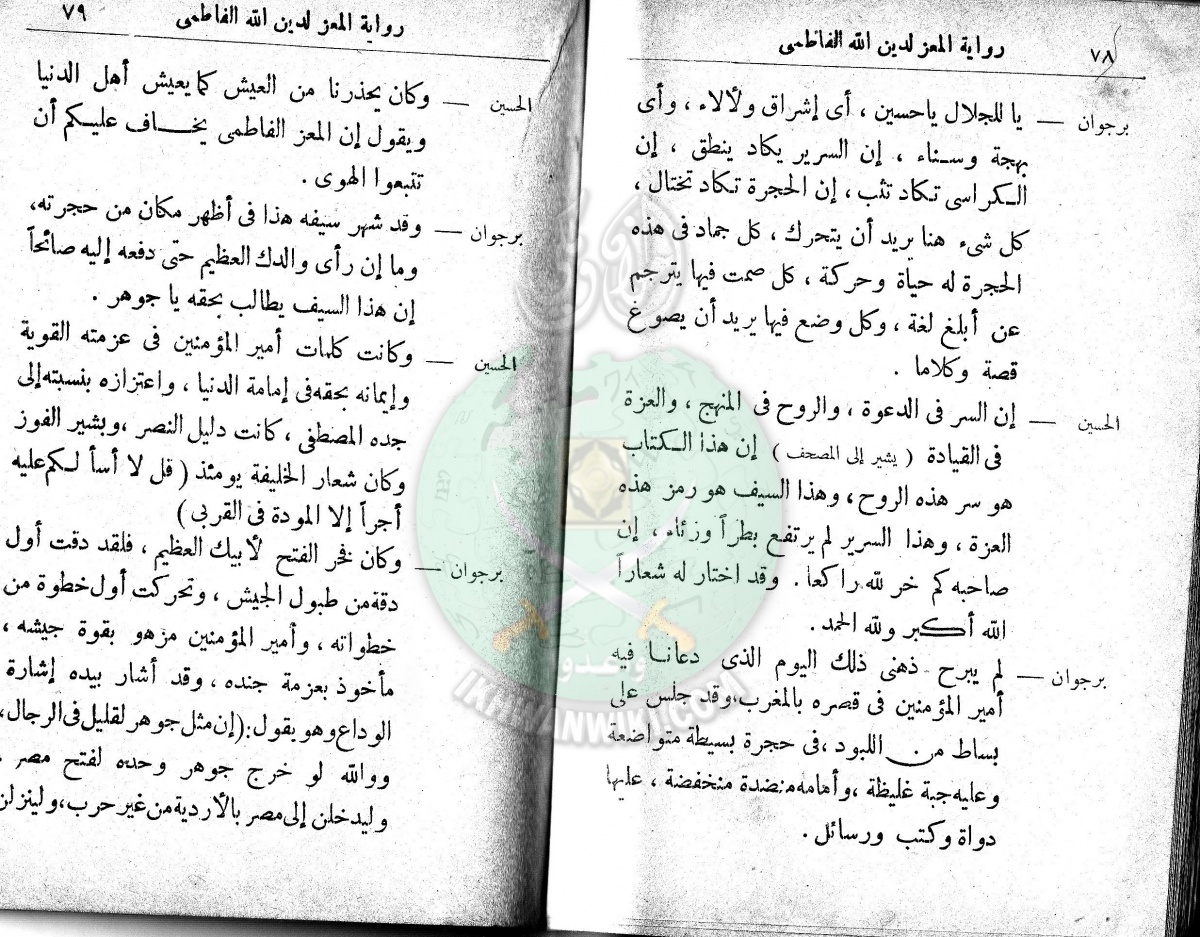 ٧٨
رواية المعز لدين الله الفاطمى
برجوان — يا للجلال ياحسين ، أى إشراق ولألاء ، وأى
بهجة وسناء ، إن السرير يكاد ينطق ، إن
الكراسى تكاد تثب ، إن الحجرة تكاد تختال ،
كل شىء هنا يريد أن يتحرك ، كل جماد فى هذه
الحجرة له حياة وحركة ، كل صمت فيها يترجم
عن أبلغ لغة ، وكل وضع فيها يريد أن يصوغ
قصة وكلاما .
الحسين — إن السر فى الدعوة ، والروح فى المنهج ، والعزة
فى القيادة ( يشير إلى المصحف ) إن هذا الكتاب
هو سر هذه الروح ، وهذا السيف هو رمز هذه
العزة ، وهذا السرير لم يرتفع بطراً ورئاء ، إن
صاحبه كم خر لله راكعا . وقد اختار له شعاراً
الله أكبر ولله الحمد .
برجوان — لم يبرح ذهنى ذلك اليوم الذى دعانا فيه
أمير المؤمنين فى قصره بالمغرب ، وقد جلس على
بساط من اللبود ، فى حجرة بسيطة متواضعة
وعليه جبة غليظة ، وأمامه منضدة منخفضة ، عليها
دواة وكتب ورسائل .
٧٩
رواية المعز لدين الله الفاطمى
الحسين — وكان يحذرنا من العيش كما يعيش أهل الدنيا
ويقول إن المعز الفاطمى يخاف عليكم أن
تتبعوا الهوى .
برجوان — وقد شهر سيفه هذا فى أظهر مكان من حجرته ،
وما إن رأى والدك العظيم حتى دفعه إليه صائحاً
إن هذا السيف يطالب بحقه يا جوهر .
الحسين — وكانت كلمات أمير المؤمنين فى عزمته القوية
وإيمانه بحقه فى إمامة الدنيا ، واعتزازه بنسبته إلى
جده المصطفى ، كانت دليل النصر ، وبشير الفوز
وكان شعار الخليفة يومئذ ( قل لا أسألكم عليه
أجراً إلا المودة فى القربى )
برجوان — وكان فخر الفتح لأبيك العظيم ، فلقد دقت أول
دقة من طبول الجيش ، وتحركت أول خطوة من
خطواته ، وأمير المؤمنين مزهو بقوة جيشه ،
مأخوذ بعزمة جنده ، وقد أشار بيده إشارة
الوداع وهو يقول : ( إن مثل جوهر لقليل فى الرجال ،
ووالله لو خرج جوهر وحده لفتح مصر
وليدخلن إلى مصر بالأردية من غير حرب ، ولينزلن
وعدوا
IKHWANWIKI.COM